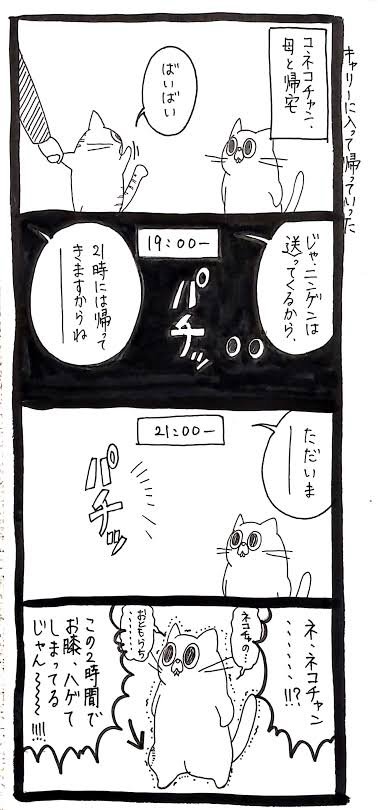 キャリーに入って帰っていった
コネコチャン、
母と帰宅
ばいばい
じゃ、ニンゲンは
送ってくるから、
19:00ー
パチッ
21時には帰って
きますからねー
ただいまー
21:00ー
パチッ
ネ、ネコチャン
……!!?
ネコチャの
おともらち……
この2時間で
お膝、ハゲて
しまってる
じゃん〜〜〜!!!!